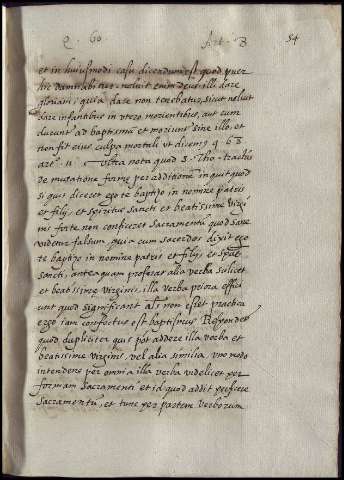 Q. 60. Art. 8 54
et in huiusmodi casu dicendum est quod puer
hic damnabitur, noluit enim deus illi dare
gloriam; quia dare non tenebatur, sicut noluit
dare infantibus in utero morientibus, aut cum
ducunt ad baptismã et moriunt sine illo, et
non fit eius culpa mortali ut divemꝰ q 68
art. 11 Ultra nota quod S. Tho. tractãs
de mutatione formę per additionem inquit quod
si quis diceret ego te baptizo in nomine patris
et filij, et spiritus sancti et beatissimę virgi
nis fortę non conficeret Sacramentũ quod sane
videtur falsum, quia cum sacerdos dixit ego
te baptizo in nomine patris et filij et spũs
sancti, antequam proferat alia verba scilicet
et beatissimę virginis, illa verba priora effici
unt quod significant als non esset practica
ergo iam confectus est baptismus Respondet
quod dupliciter quis põt addere illa verba et
beatissimę virginis vel alia similia, uno modo
intendere per omnia illa verba videlicet per
formam Sacramenti et id quod addit perficere
Sacramentũ, et tunc per partem verborum